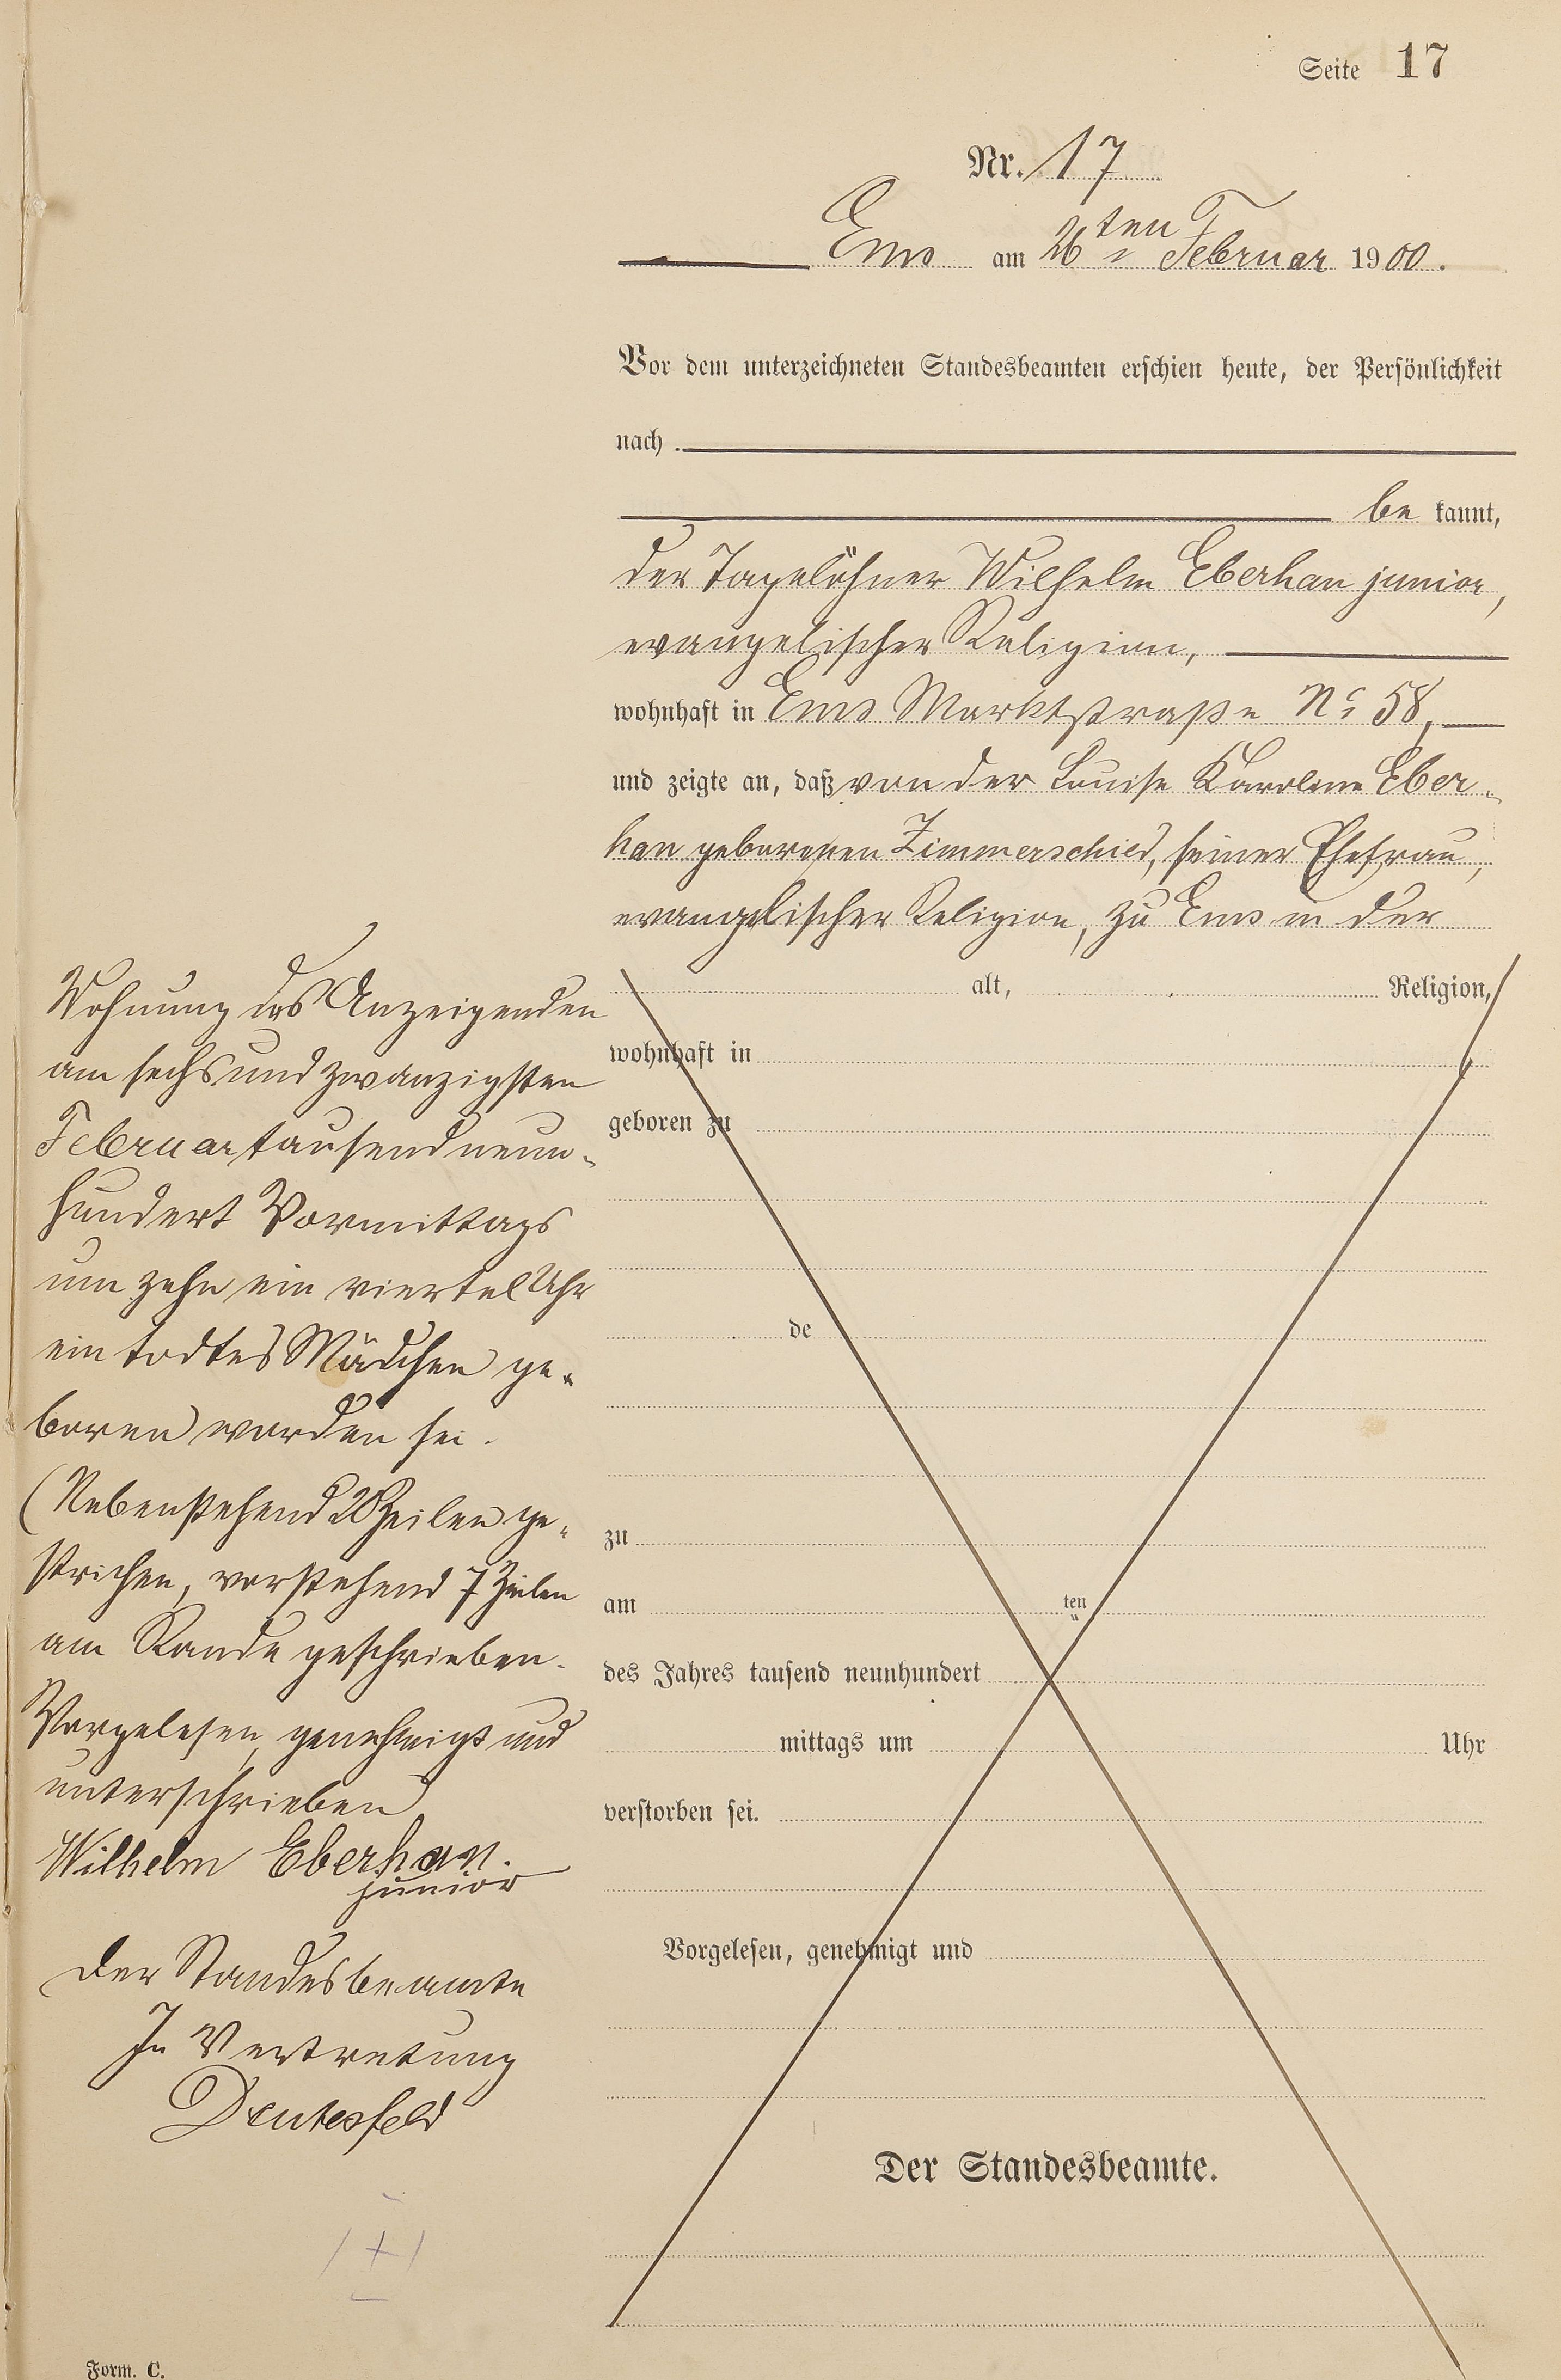 Seite 17
Nr. 17
Ems am 26ten Februar 1900.
Vor dem unterzeichneten Standesbeamten erschien heute, der Persönlichkeit
nach
be kannt,
der Tagelöhner Wilhelm Eberhan junior,
evangelischer Religion,
wohnhaft in Ems Marktstraße No 58,
und zeigte an, daß von der Louise Karoline Eber-
han geborenen Zimmerschied, seiner Ehefrau,
evangelischer Religion, zu Ems in der
alt, Religion,
wohnhaft in
geboren zu
de
zu
am ten
des Jahres tausend neunhundert
mittags um Uhr
verstorben sei.
Vorgelesen, genehmigt und
Der Standesbeamte.
Wohnung des Anzeigenden
am sechsundzwanzigsten
Februar tausendneun-
hundert Vormittags
um zehn ein viertel Uhr
ein todtes Mädchen ge-
boren worden sei.
(Nebenstehend 20 Zeilen ge-
strichen, vorstehend 7 Zeilen
am Rande geschrieben.
Vorgelesen, genehmigt und
unterschrieben
Wilhelm Eberhan.
junior
Der Standesbeamte
In Vertretung
Form. C.